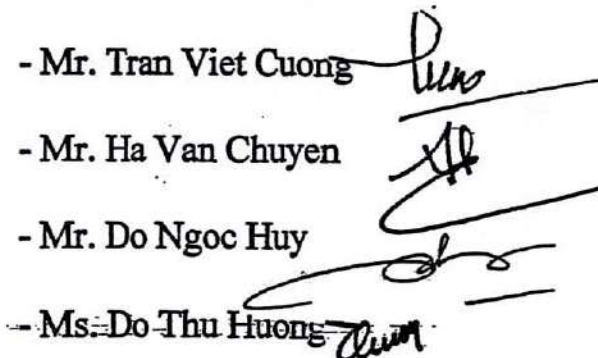 - Mr. Tran Viet Cuong
- Mr. Ha Van Chuyen
- Mr. Do Ngoc Huy
- Ms. Do Thu Huong